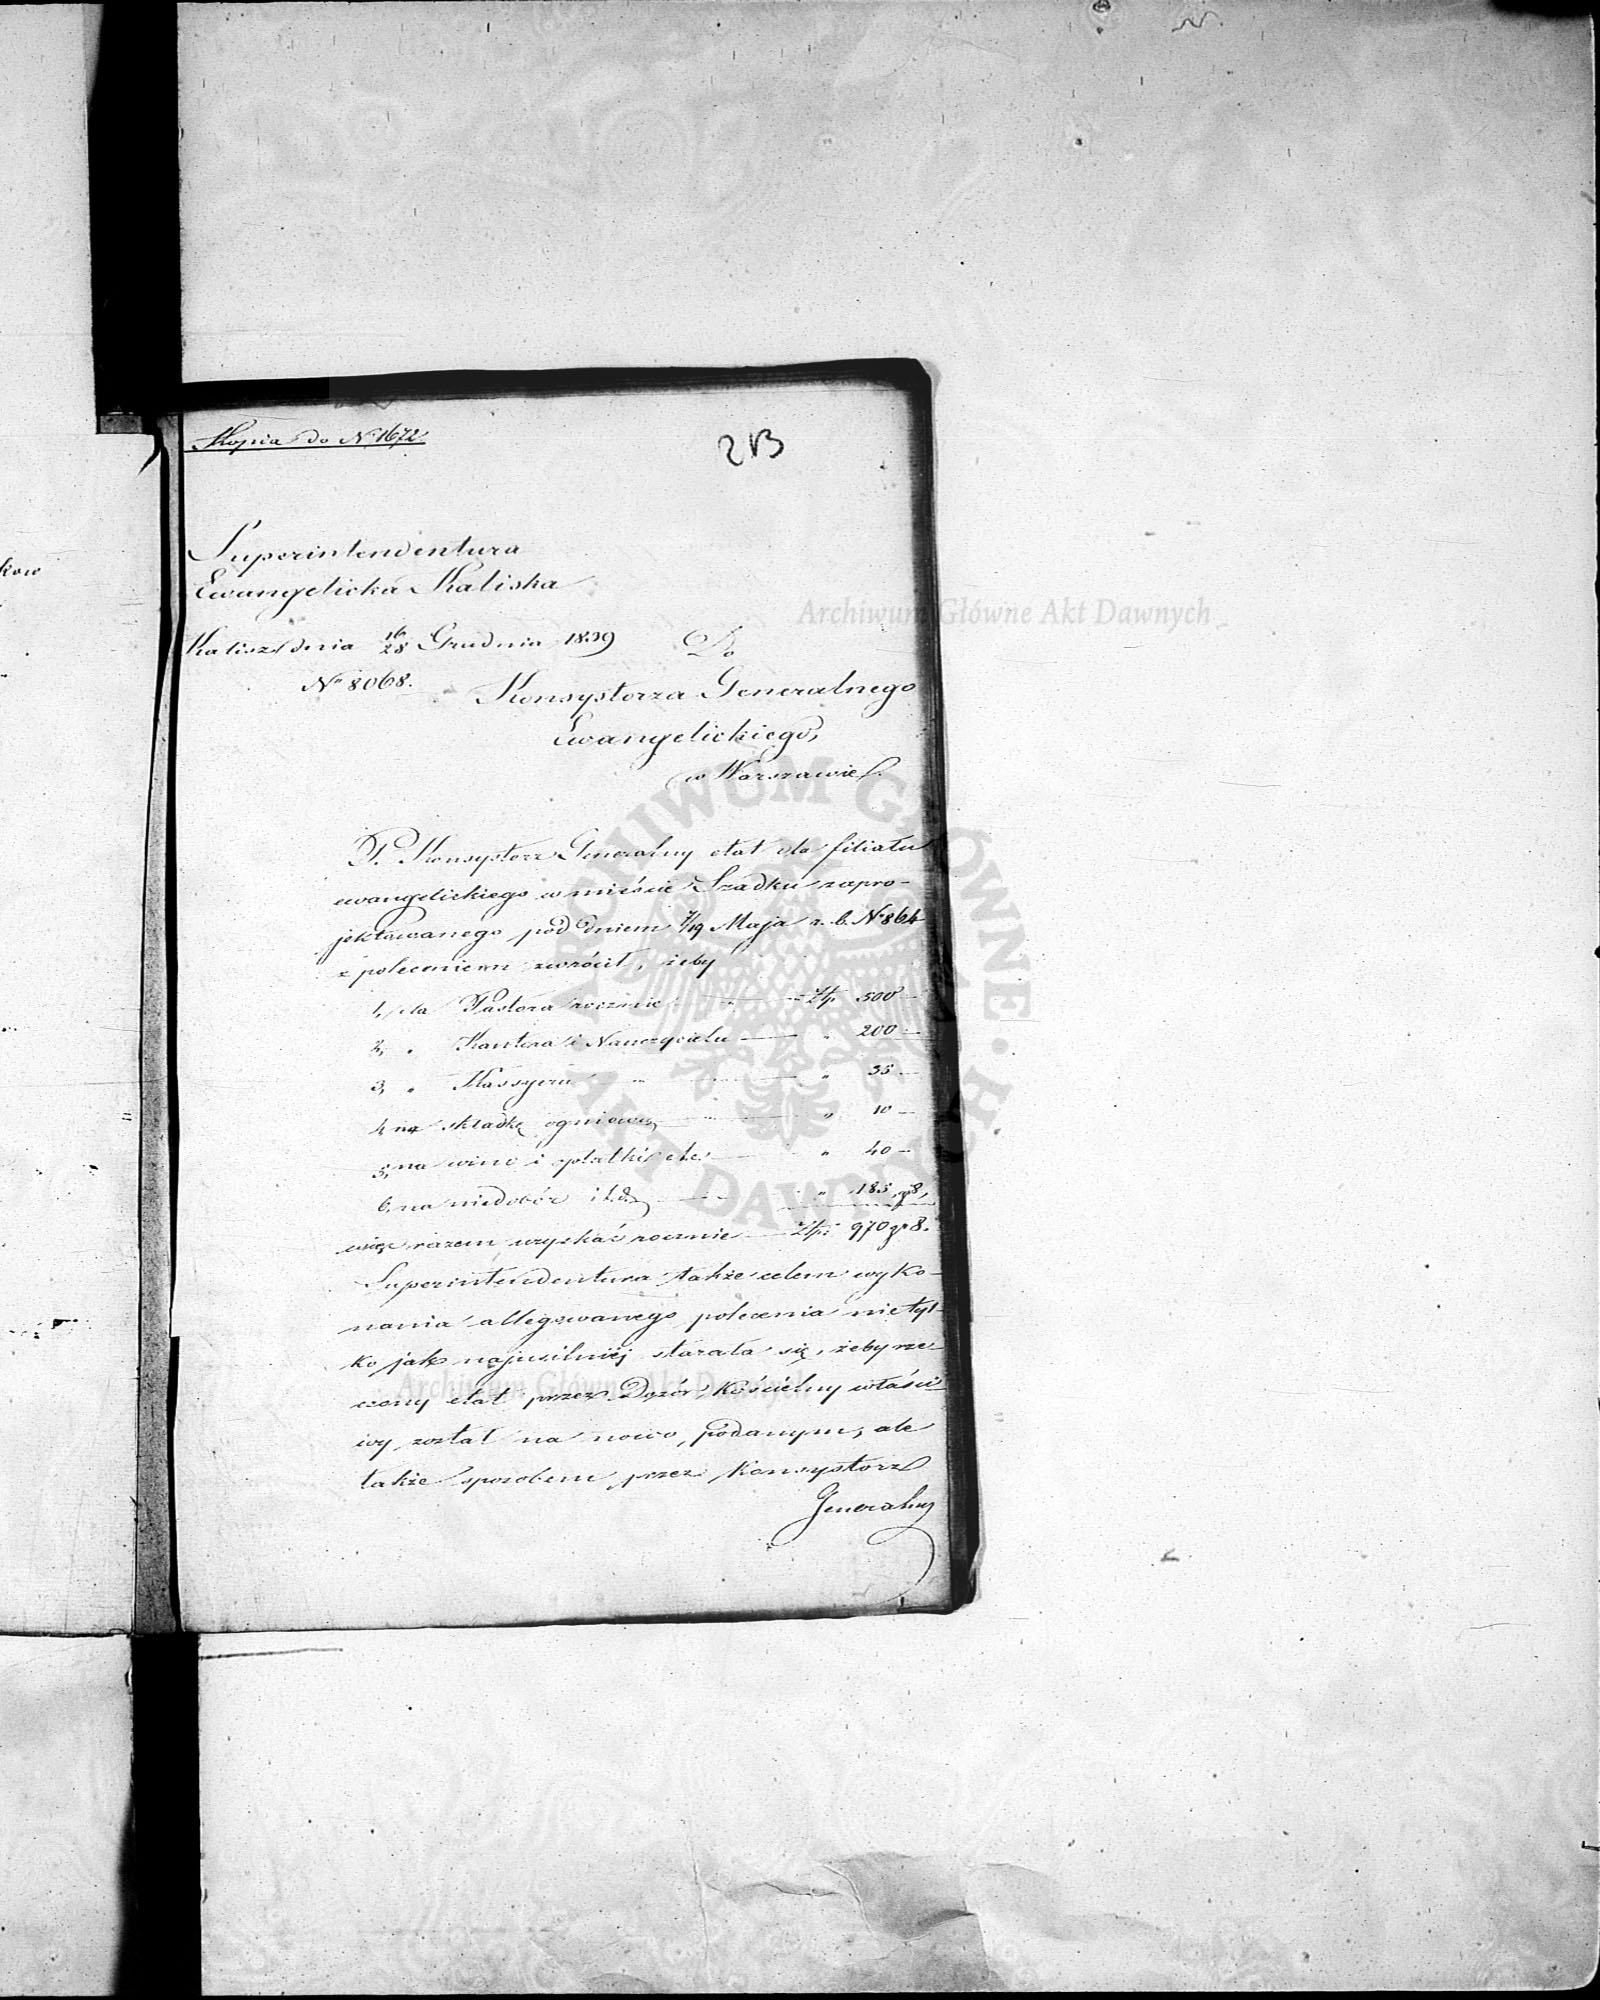 Kopia do N. 1672
213
Superintendentura
Ewangelicka Kaliska
Kalisz dnia 16/28 Grudnia 1839
Do
No 8068.
Konsystorza Generalnego
Ewangelickiego,
w Warszawie.
P. Konsystorz Generalny etat dla filiału
ewangelickiego w mieście Szadku zapro-
jektowanego pod dniem 7/19 Maja r. b. No 864
z poleceniem zwrócił, żeby
1, dla Pastora rocznie — Złp. 500 —
2, " Kantora i Nauczyciela — " 200 —
3, " Kassyera " — " 35 —
4, na składkę ogniową — " 10 —
5, na wino i opłatki etc. — " 40 —
6, na niedobór i t. d. — " 185 gr 8,
więc razem uzyskać rocznie — Złp. 970 gr 8.
Superintendentura także celem wyko-
nania allegowanego polecenia nie tyl-
ko jak najusilniej starała się, żeby rze-
czony etat przez Dozór Kościelny właści-
wy został na nowo podanym, ale
także sposobem przez Konsystorz
Generalny
kow
Archiwum Główne Akt Dawnych
ARCHIWUM GŁÓWNE AKT DAWNYCH
Archiwum Główne Akt Dawnych